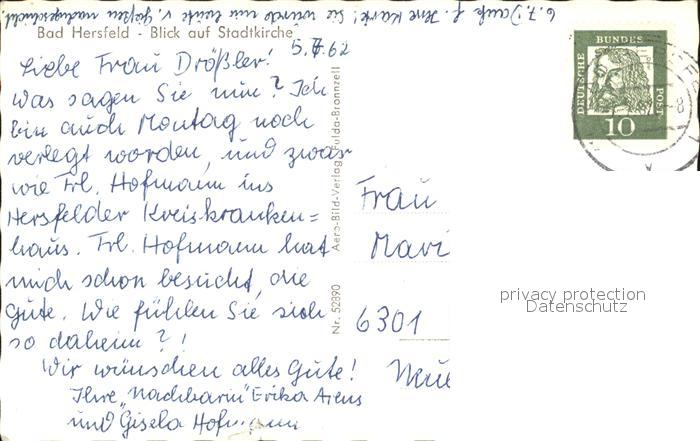 6.7.! Dank f. Ihre Karte! Sie wurde mir heute v. Gießen nachgesucht.
Bad Hersfeld - Blick auf Stadtkirche
5.7.62
Liebe Frau Drößler!
Was sagen Sie nun? Ich
bin auch Montag noch
verlegt worden, und zwar
wie Frl. Hofmann ins
Hersfelder Kreiskranken=
haus. Frl. Hofmann hat
mich schon besucht, die
Gute. Wie fühlen Sie sich
so daheim?!
Wir wünschen alles Gute!
Ihre "Nachbarin" Erika Arens
und Gisela Hofmann
Nr. 52890 Aero-Bild-Verlag Fulda-Bronnzell
DEUTSCHE
BUNDES
POST
10
Frau
Mari
6301
Neue
privacy protection
Datenschutz